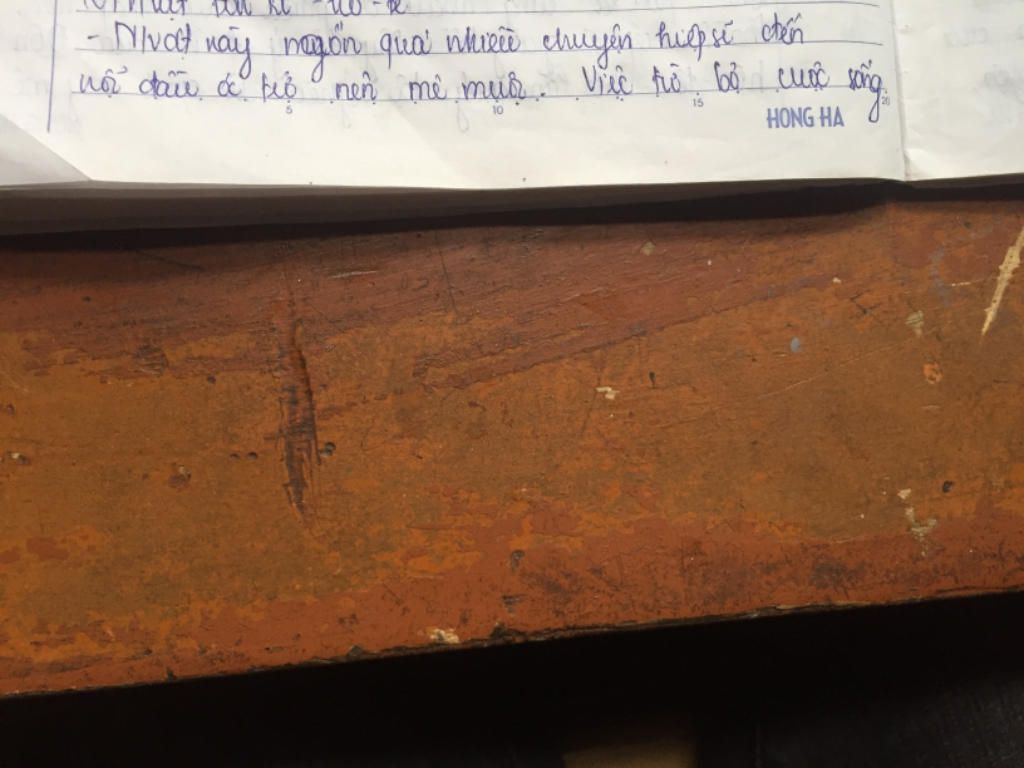 - N/vật này ngốn quá nhiều chuyện hiệp sĩ đến
nổi đầu óc trở nên mê muội. Việc từ bỏ cuộc sống
5 10 15 20
HONG HA